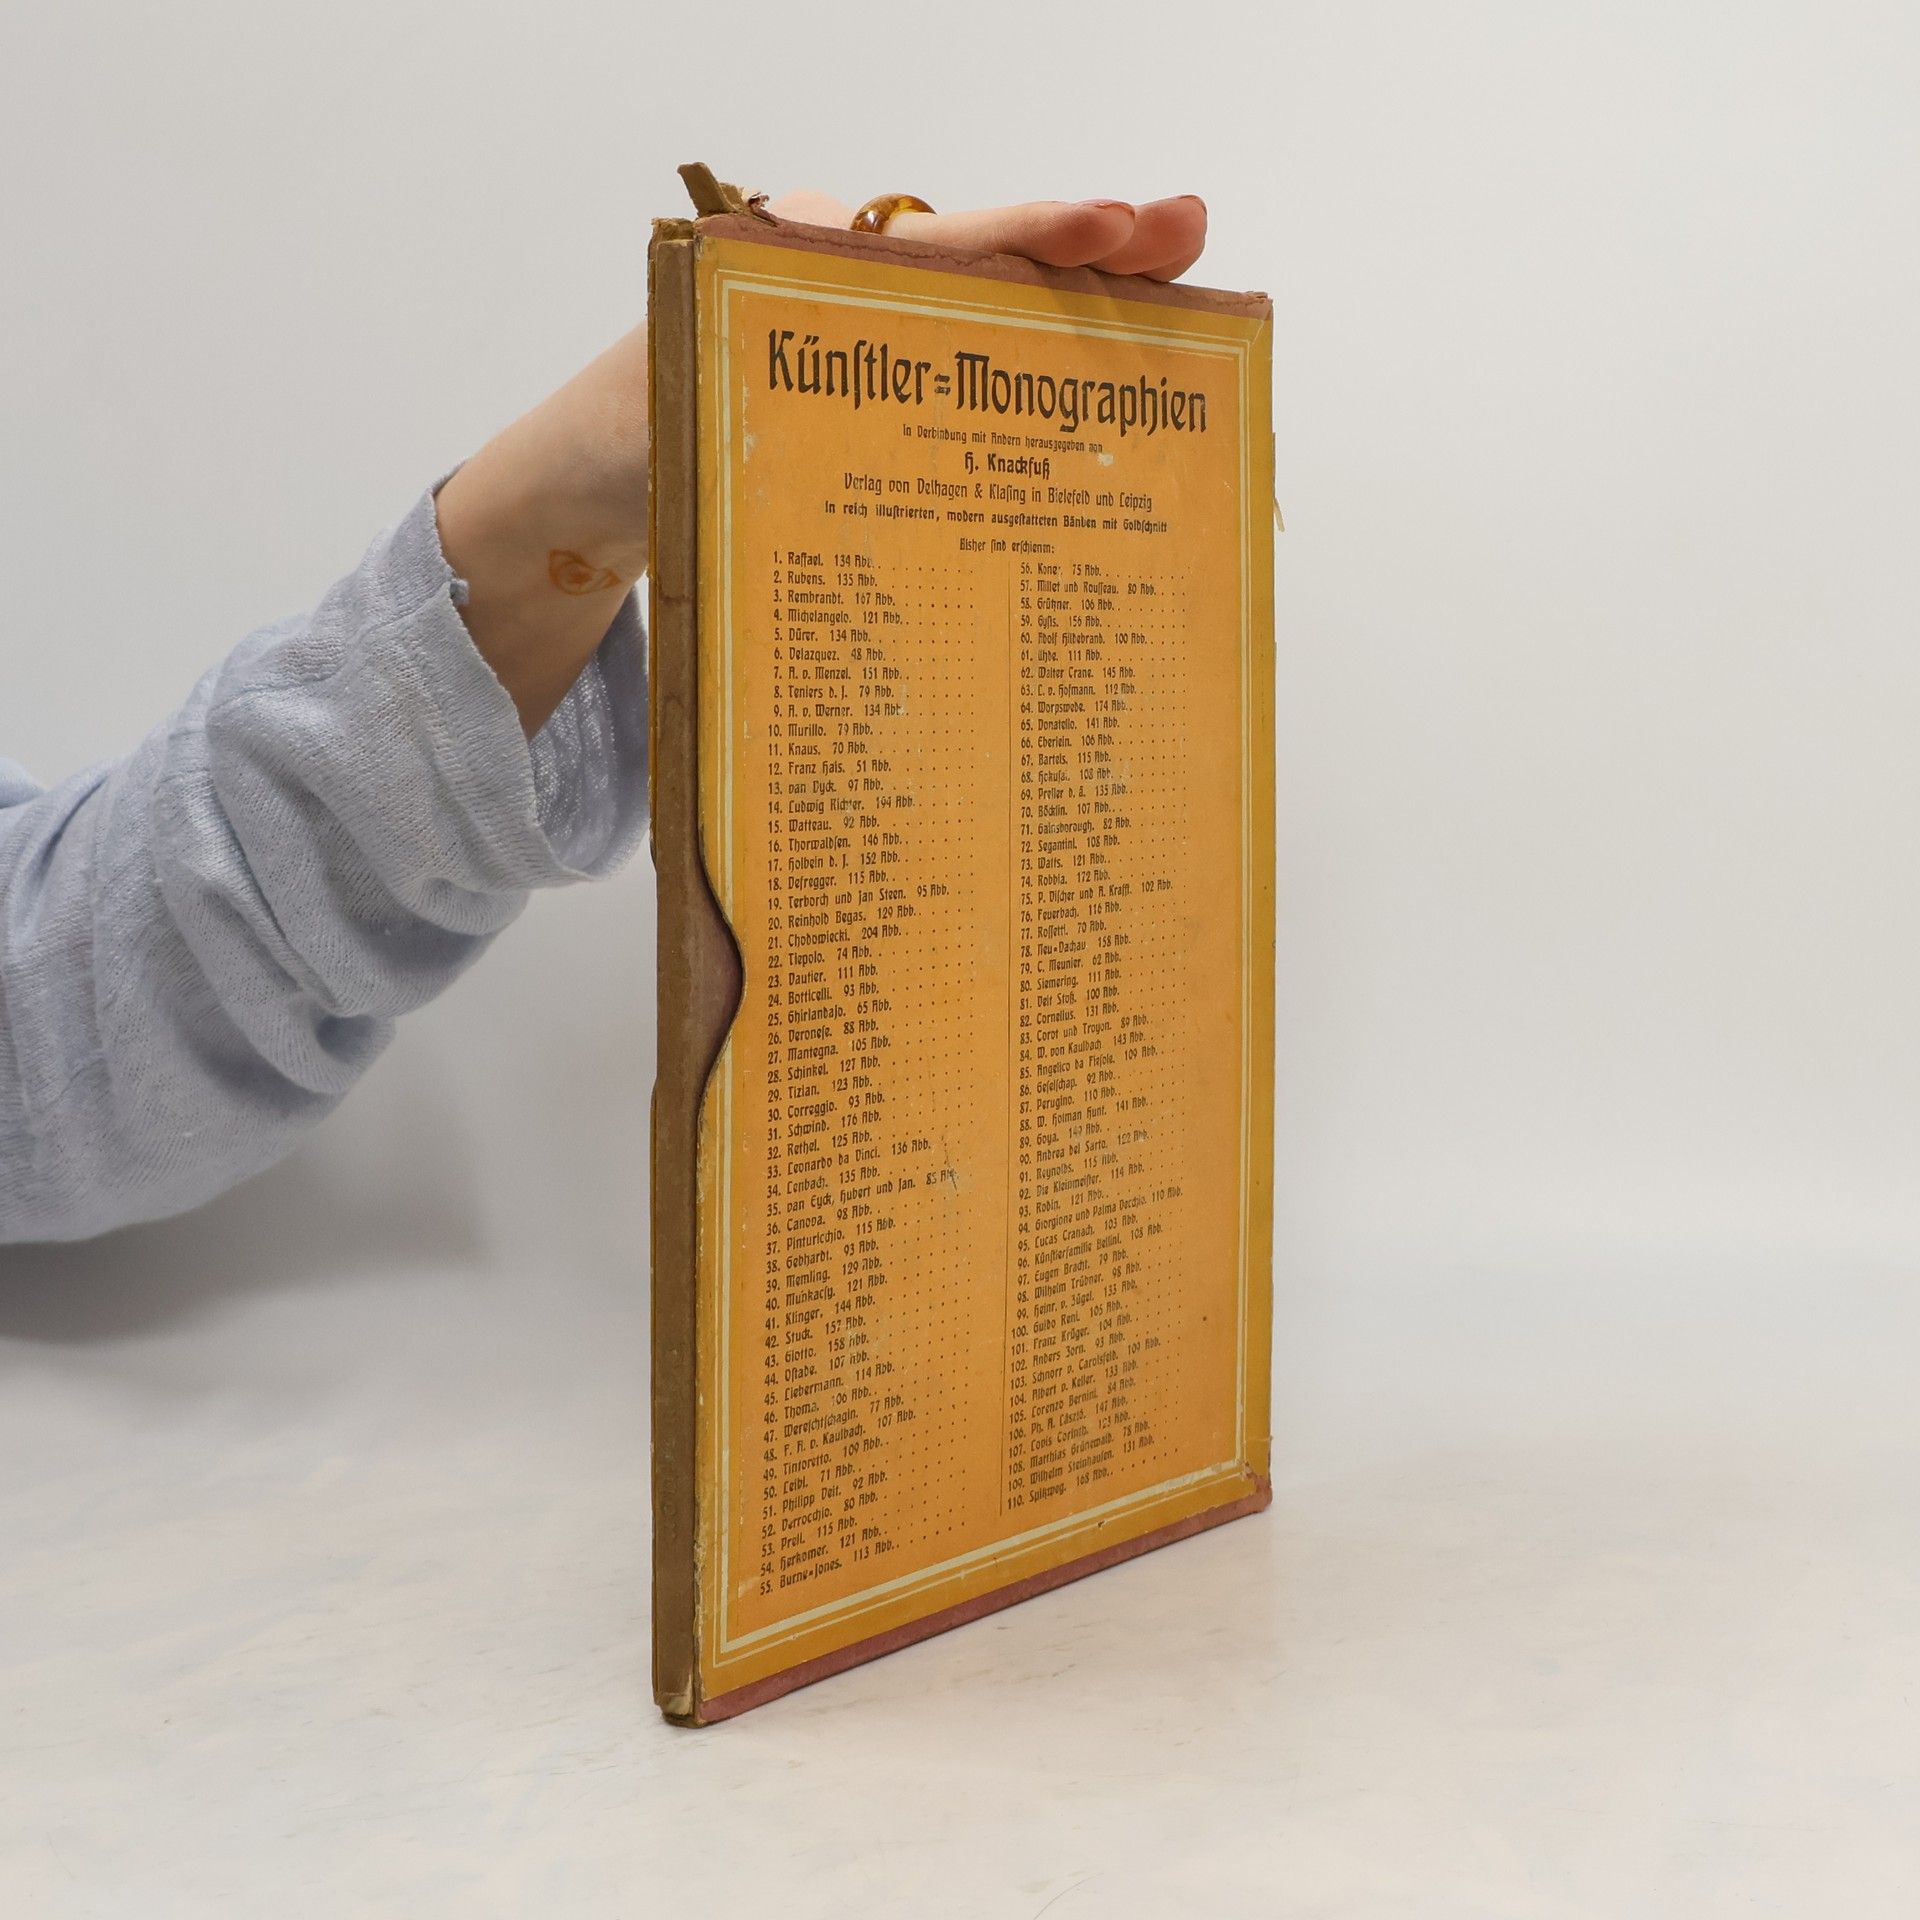 Künſtler=Monographien
In Verbindung mit Andern herausgegeben von
H. Knackfuß
Verlag von Velhagen & Klaſing in Bielefeld und Leipzig
In reich illuſtrierten, modern ausgeſtatteten Bänden mit Goldſchnitt
Bisher ſind erſchienen:
1. Raffael. 134 Abb.
2. Rubens. 135 Abb.
3. Rembrandt. 167 Abb.
4. Michelangelo. 121 Abb.
5. Dürer. 134 Abb.
6. Velazquez. 48 Abb.
7. A. v. Menzel. 151 Abb.
8. Teniers d. J. 79 Abb.
9. A. v. Werner. 134 Abb.
10. Murillo. 79 Abb.
11. Knaus. 70 Abb.
12. Franz Hals. 51 Abb.
13. van Dyck. 97 Abb.
14. Ludwig Richter. 194 Abb.
15. Watteau. 92 Abb.
16. Thorwaldſen. 146 Abb.
17. Holbein d. J. 152 Abb.
18. Defregger. 115 Abb.
19. Terborch und Jan Steen. 95 Abb.
20. Reinhold Begas. 129 Abb.
21. Chodowiecki. 204 Abb.
22. Tiepolo. 74 Abb.
23. Vautier. 111 Abb.
24. Botticelli. 93 Abb.
25. Ghirlandajo. 65 Abb.
26. Veroneſe. 88 Abb.
27. Mantegna. 105 Abb.
28. Schinkel. 127 Abb.
29. Tizian. 123 Abb.
30. Correggio. 93 Abb.
31. Schwind. 176 Abb.
32. Rethel. 125 Abb.
33. Leonardo da Vinci. 136 Abb.
34. Lenbach. 135 Abb.
35. van Eyck, Hubert und Jan. 85 Abb.
36. Canova. 98 Abb.
37. Pinturicchio. 115 Abb.
38. Gebhardt. 93 Abb.
39. Memling. 129 Abb.
40. Munkacſy. 121 Abb.
41. Klinger. 144 Abb.
42. Stuck. 157 Abb.
43. Giotto. 158 Abb.
44. Oſtade. 107 Abb.
45. Liebermann. 114 Abb.
46. Thoma. 106 Abb.
47. Wereſchtſchagin. 77 Abb.
48. F. A. v. Kaulbach. 107 Abb.
49. Tintoretto. 109 Abb.
50. Leibl. 71 Abb.
51. Philipp Veit. 92 Abb.
52. Verrocchio. 80 Abb.
53. Prell. 115 Abb.
54. Herkomer. 121 Abb.
55. Burne=Jones. 113 Abb.
56. Koner. 75 Abb.
57. Millet und Rouſſeau. 80 Abb.
58. Grützner. 106 Abb.
59. Gyſis. 156 Abb.
60. Adolf Hildebrand. 100 Abb.
61. Uhde. 111 Abb.
62. Walter Crane. 145 Abb.
63. L. v. Hofmann. 112 Abb.
64. Worpswede. 174 Abb.
65. Donatello. 141 Abb.
66. Eberlein. 106 Abb.
67. Bartels. 115 Abb.
68. Hokuſai. 108 Abb.
69. Preller d. ä. 135 Abb.
70. Böcklin. 107 Abb.
71. Gainsborough. 82 Abb.
72. Segantini. 108 Abb.
73. Watts. 121 Abb.
74. Robbia. 172 Abb.
75. P. Viſcher und A. Krafft. 102 Abb.
76. Feuerbach. 116 Abb.
77. Roſſetti. 70 Abb.
78. Neu=Dachau. 158 Abb.
79. C. Meunier. 62 Abb.
80. Siemering. 111 Abb.
81. Veit Stoß. 100 Abb.
82. Cornelius. 131 Abb.
83. Corot und Troyon. 89 Abb.
84. W. von Kaulbach. 143 Abb.
85. Angelico da Fieſole. 109 Abb.
86. Geſelſchap. 92 Abb.
87. Perugino. 110 Abb.
88. W. Holman Hunt. 141 Abb.
89. Goya. 149 Abb.
90. Andrea del Sarto. 122 Abb.
91. Reynolds. 115 Abb.
92. Die Kleinmeiſter. 114 Abb.
93. Rodin. 121 Abb.
94. Giorgione und Palma Vecchio. 110 Abb.
95. Lucas Cranach. 103 Abb.
96. Künſtlerfamilie Bellini. 108 Abb.
97. Eugen Bracht. 79 Abb.
98. Wilhelm Trübner. 98 Abb.
99. Heinr. v. Zügel. 133 Abb.
100. Guido Reni. 105 Abb.
101. Franz Krüger. 104 Abb.
102. Anders Zorn. 93 Abb.
103. Schnorr v. Carolsfeld. 109 Abb.
104. Albert v. Keller. 133 Abb.
105. Lorenzo Bernini. 84 Abb.
106. Ph. A. László. 147 Abb.
107. Lovis Corinth. 123 Abb.
108. Matthias Grünewald. 78 Abb.
109. Wilhelm Steinhauſen. 131 Abb.
110. Spitzweg. 168 Abb.